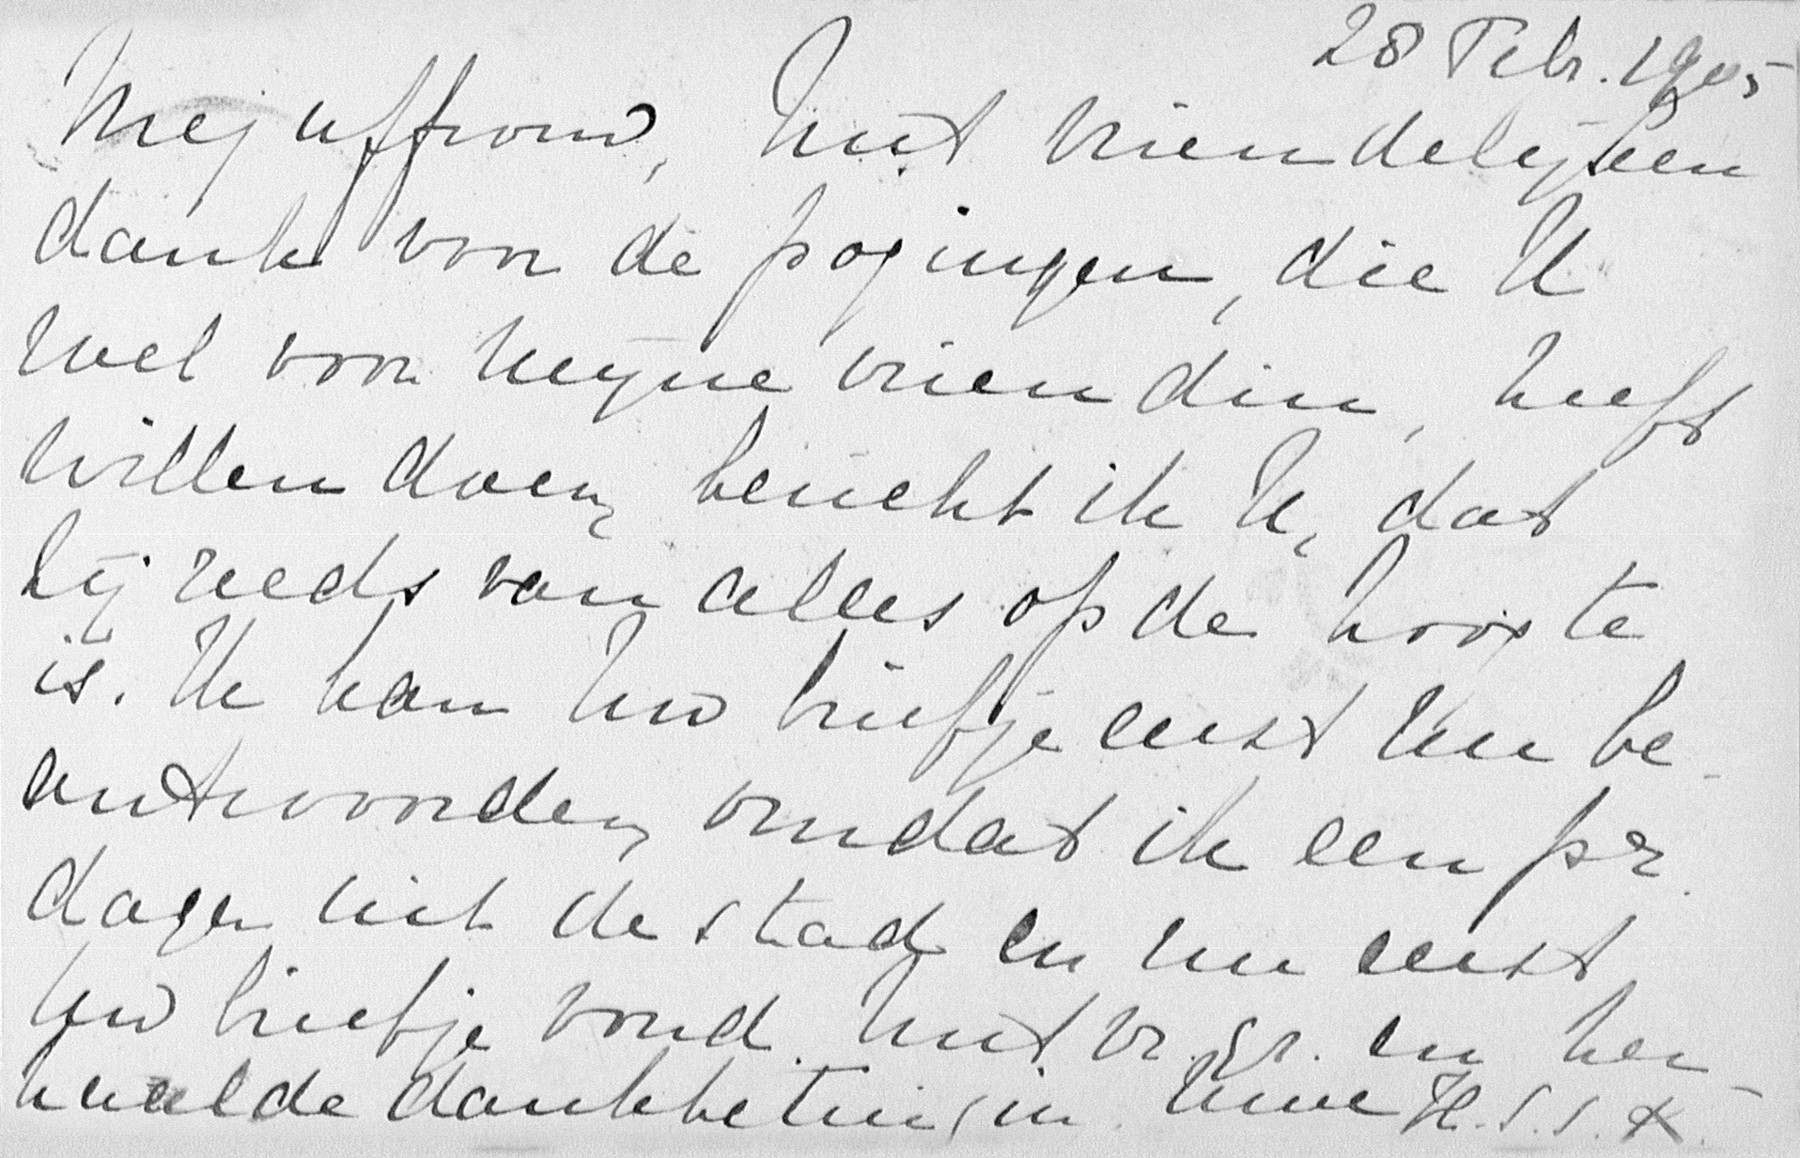 28 Febr. 1905
Mejuffrouw, Met vriendelijken
dank voor de pogingen, die U
wel voor mijne vriendin, heeft
willen doen, bericht ik U, dat
zij reeds van alles op de hoogte
is. Ik kan Uw briefje eerst nu be-
antwoorden, omdat ik een pr.
dagen uit de stad en nu eerst
Uw briefje vond. Met vr. gr. en her
haalde dankbetuiging. Uwe H. S. S. K.